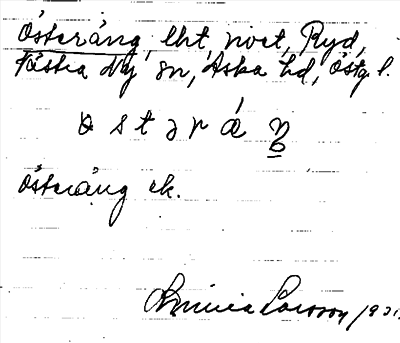 Österäng, lht, invet, Ryd,
Västra Ny sn, Aska hd, Östg. l.
östäräŋ
Österäng ek.
Linnea Larsson 1931.